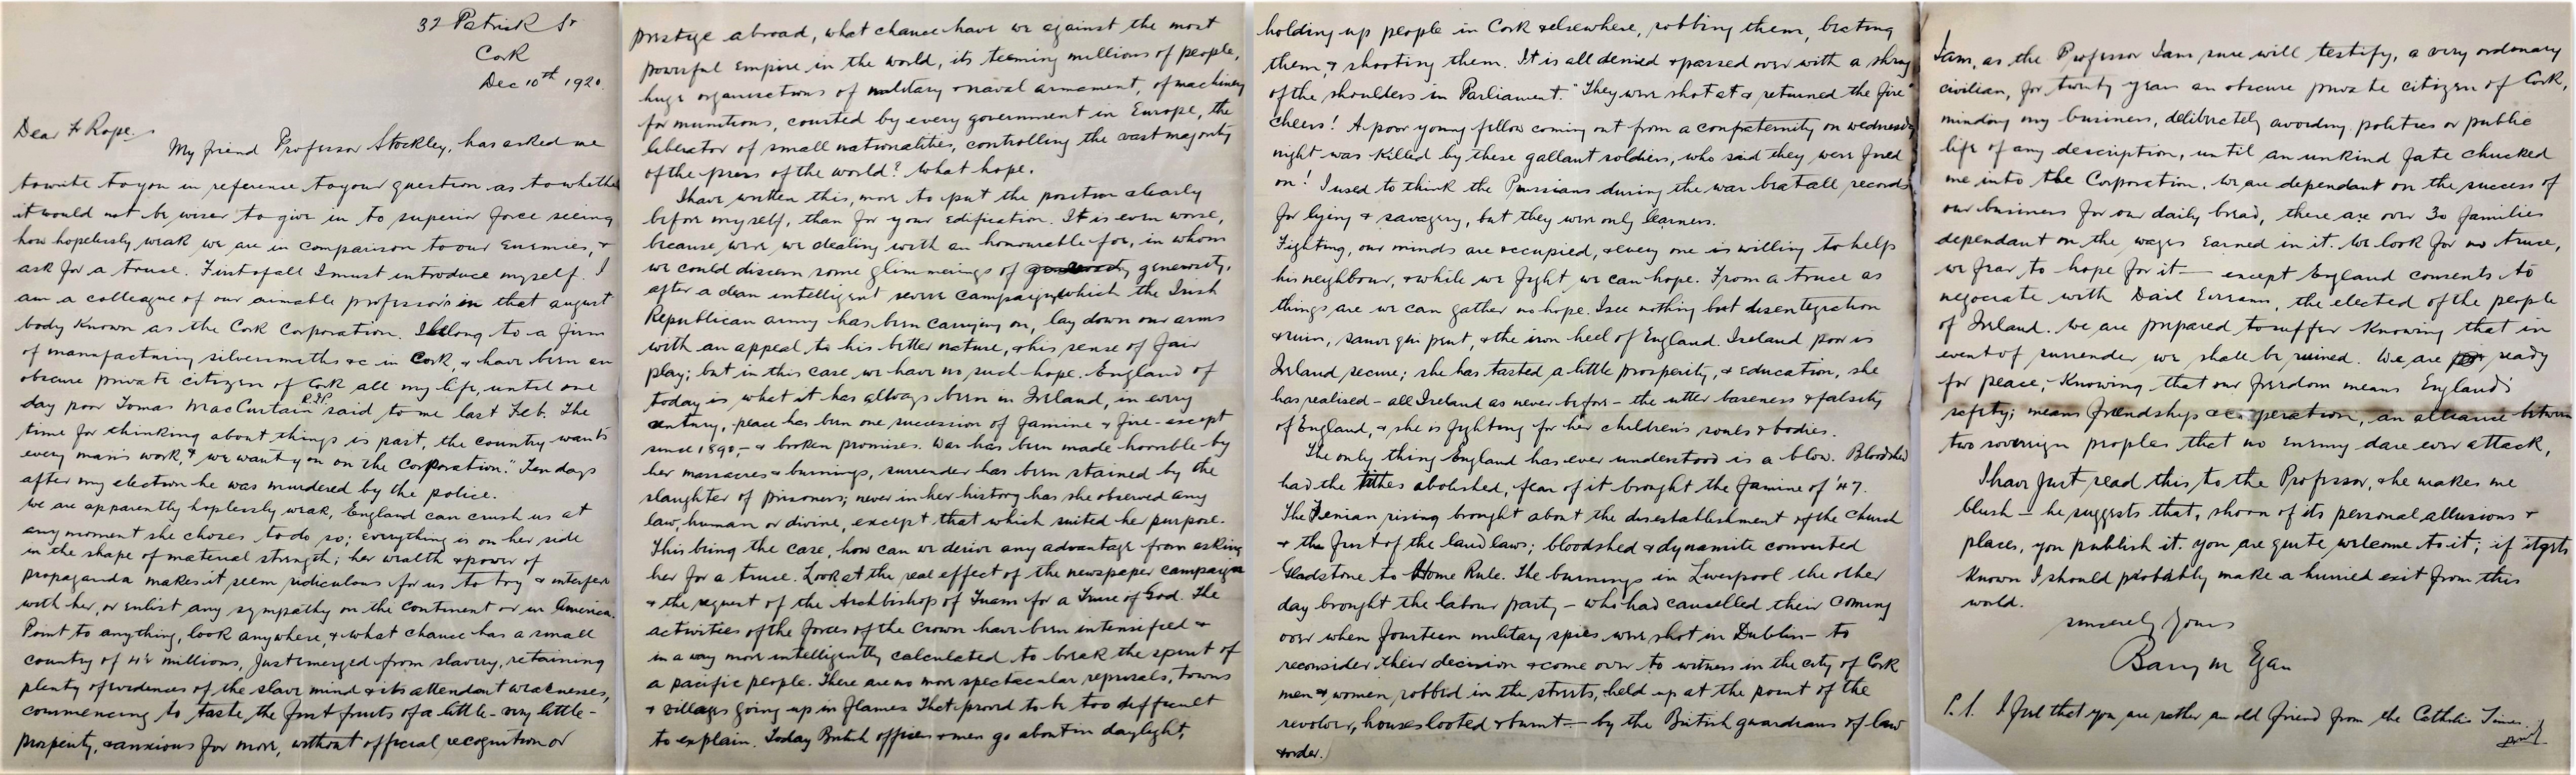 32 Patrick St
Cork
Dec 10th 1920.
Dear Fr Rope
My friend Professor Stockley, has asked me
to write to you in reference to your question as to whether
it would not be wiser to give in to superior force seeing
how hopelessly weak we are in comparison to our enemies, &
ask for a truce. First of all I must introduce myself. I
am a colleague of our aimable professor's in that august
body known as the Cork Corporation. I belong to a firm
of manufacturing silversmiths &c in Cork, & have been an
obscure private citizen of Cork all my life, until one
day poor Tomas MacCurtain R.I.P. said to me last Feb. The
time for thinking about things is past, the country wants
every man's work, & we want you on the Corporation." Ten days
after my election he was murdered by the police.
We are apparently hoplessly weak, England can crush us at
any moment she choses to do so; everything is on her side
in the shape of material strength; her wealth & power of
propaganda makes it seem ridiculous for us to try & interfere
with her, or enlist any sympathy on the Continent or in America.
Point to anything, look anywhere, & what chance has a small
country of 4½ millions, just emerged from slavery, retaining
plenty of evidences of the slave mind & its attendant weaknesses,
commencing to taste the first fruits of a little - very little -
prosperity, & anxious for more, without official recognition or
prestige abroad, what chance have we against the most
powerful Empire in the world, its teeming millions of people,
huge organisations of military & naval armament, of machinery
for munitions, courted by every government in Europe, the
liberator of small nationalities, controlling the vast majority
of the press of the world? What hope.
I have written this, more to put the position clearly
before myself, than for your edification. It is even worse,
because were we dealing with an honourable foe, in whom
we could discern some glimmerings of generosity,
after a clean intelligent severe campaign which the Irish
Republican army has been carrying on, lay down our arms
with an appeal to his better nature, & his sense of fair
play; but in this case we have no such hope. England of
today is what it has always been in Ireland, in every
century, peace has been one succession of famine & fire - except
since 1890, - & broken promises. War has been made horrible by
her massacres & burnings, surrender has been stained by the
slaughter of prisoners; never in her history has she observed any
law, human or divine, except that which suited her purpose.
This being the case, how can we derive any advantage from asking
her for a truce. Look at the real effect of the newspaper campaign
& the request of the Archbishop of Tuam for a Truce of God. The
activities of the forces of the Crown have been intensified &
in a way more intelligently calculated to break the spirit of
a pacific people. There are no more spectacular reprisals, towns
& villages going up in flames That proved to be too difficult
to explain. Today British officers & men go about in daylight,
holding up people in Cork & elsewhere, robbing them, beating
them, & shooting them. It is all denied & passed over with a shrug
of the shoulders in Parliament. "They were shot at & returned the fire"
Cheers! A poor young fellow coming out from a confraternity on wednesday
night was killed by these gallant soldiers, who said they were fired
on! I used to think the Prussians during the war beat all records
for lying & savagery, but they were only learners.
Fighting, our minds are occupied, & every one is willing to help
his neighbour, & while we fight we can hope. From a truce as
things are we can gather no hope. I see nothing but disentegration
& ruin, sauve qui peut, & the iron heel of England. Ireland poor is
Ireland secure; she has tasted a little prosperity, & education, she
has realised - all Ireland as never before - the utter baseness & falsity
of England, & she is fighting for her children's souls & bodies.
The only thing England has ever understood is a blow. Bloodshed
had the tithes abolished, fear of it brought the famine of '47.
The Fenian rising brought about the disestablishment of the Church
& the first of the land laws; bloodshed & dynamite converted
Gladstone to Home Rule. The burnings in Liverpool the other
day brought the labour party - who had cancelled their coming
over when fourteen military spies were shot in Dublin - to
reconsider their decision & come over to witness in the city of Cork
men & women robbed in the streets, held up at the point of the
revolver, houses looted & burnt - by the British guardians of law
& order.
I am, as the Professor I am sure will testify, a very ordinary
civilian, for twenty years an obscure private citizen of Cork,
minding my business, deliberately avoiding politics or public
life of any description, until an unkind fate chucked
me into the Corporation. We are dependant on the success of
our business for our daily bread, there are over 30 families
dependant on the wages earned in it. We look for no truce,
we fear to hope for it - except England consents to
negociate with Dail Eireann, the elected of the people
of Ireland. We are prepared to suffer knowing that in
event of surrender we shall be ruined. We are ready
for peace, - knowing that our freedom means England's
safety; means friendship & co-operation, an alliance between
two sovereign peoples that no enemy dare ever attack,
I have just read this to the Professor, & he makes me
blush - he suggests that, shorn of its personal allusions &
places, you publish it. You are quite welcome to it; if it gets
known I should probably make a hurried exit from this
world.
sincerely Yours
Barry M Egan
P.S. I feel that you are rather an old friend from the Catholic Times.